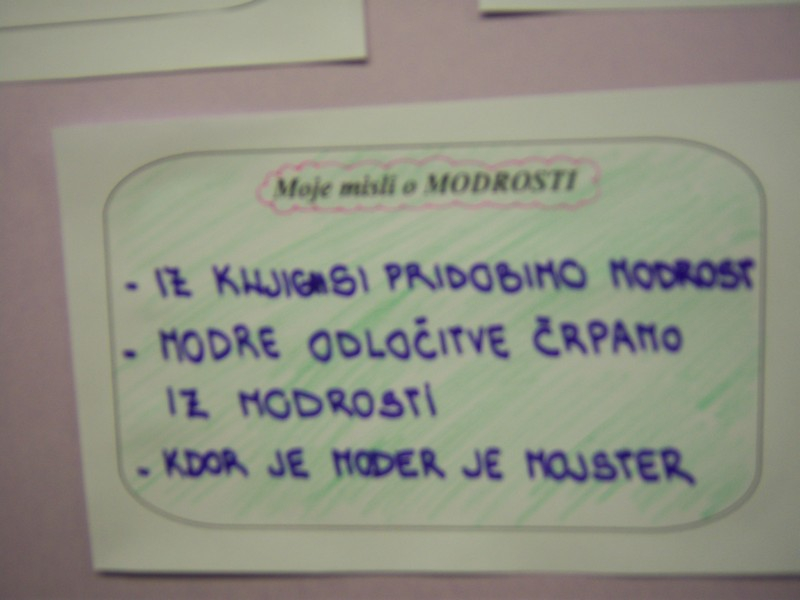 Moje misli o MODROSTI
- IZ KNJIG SI PRIDOBIMO MODROST
- MODRE ODLOČITVE ČRPAMO
IZ MODROSTI
- KDOR JE MODER JE MOJSTER